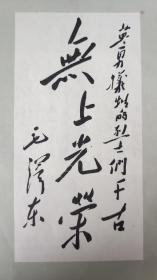 英勇牺牲的烈士们千古
無上光榮
毛澤东